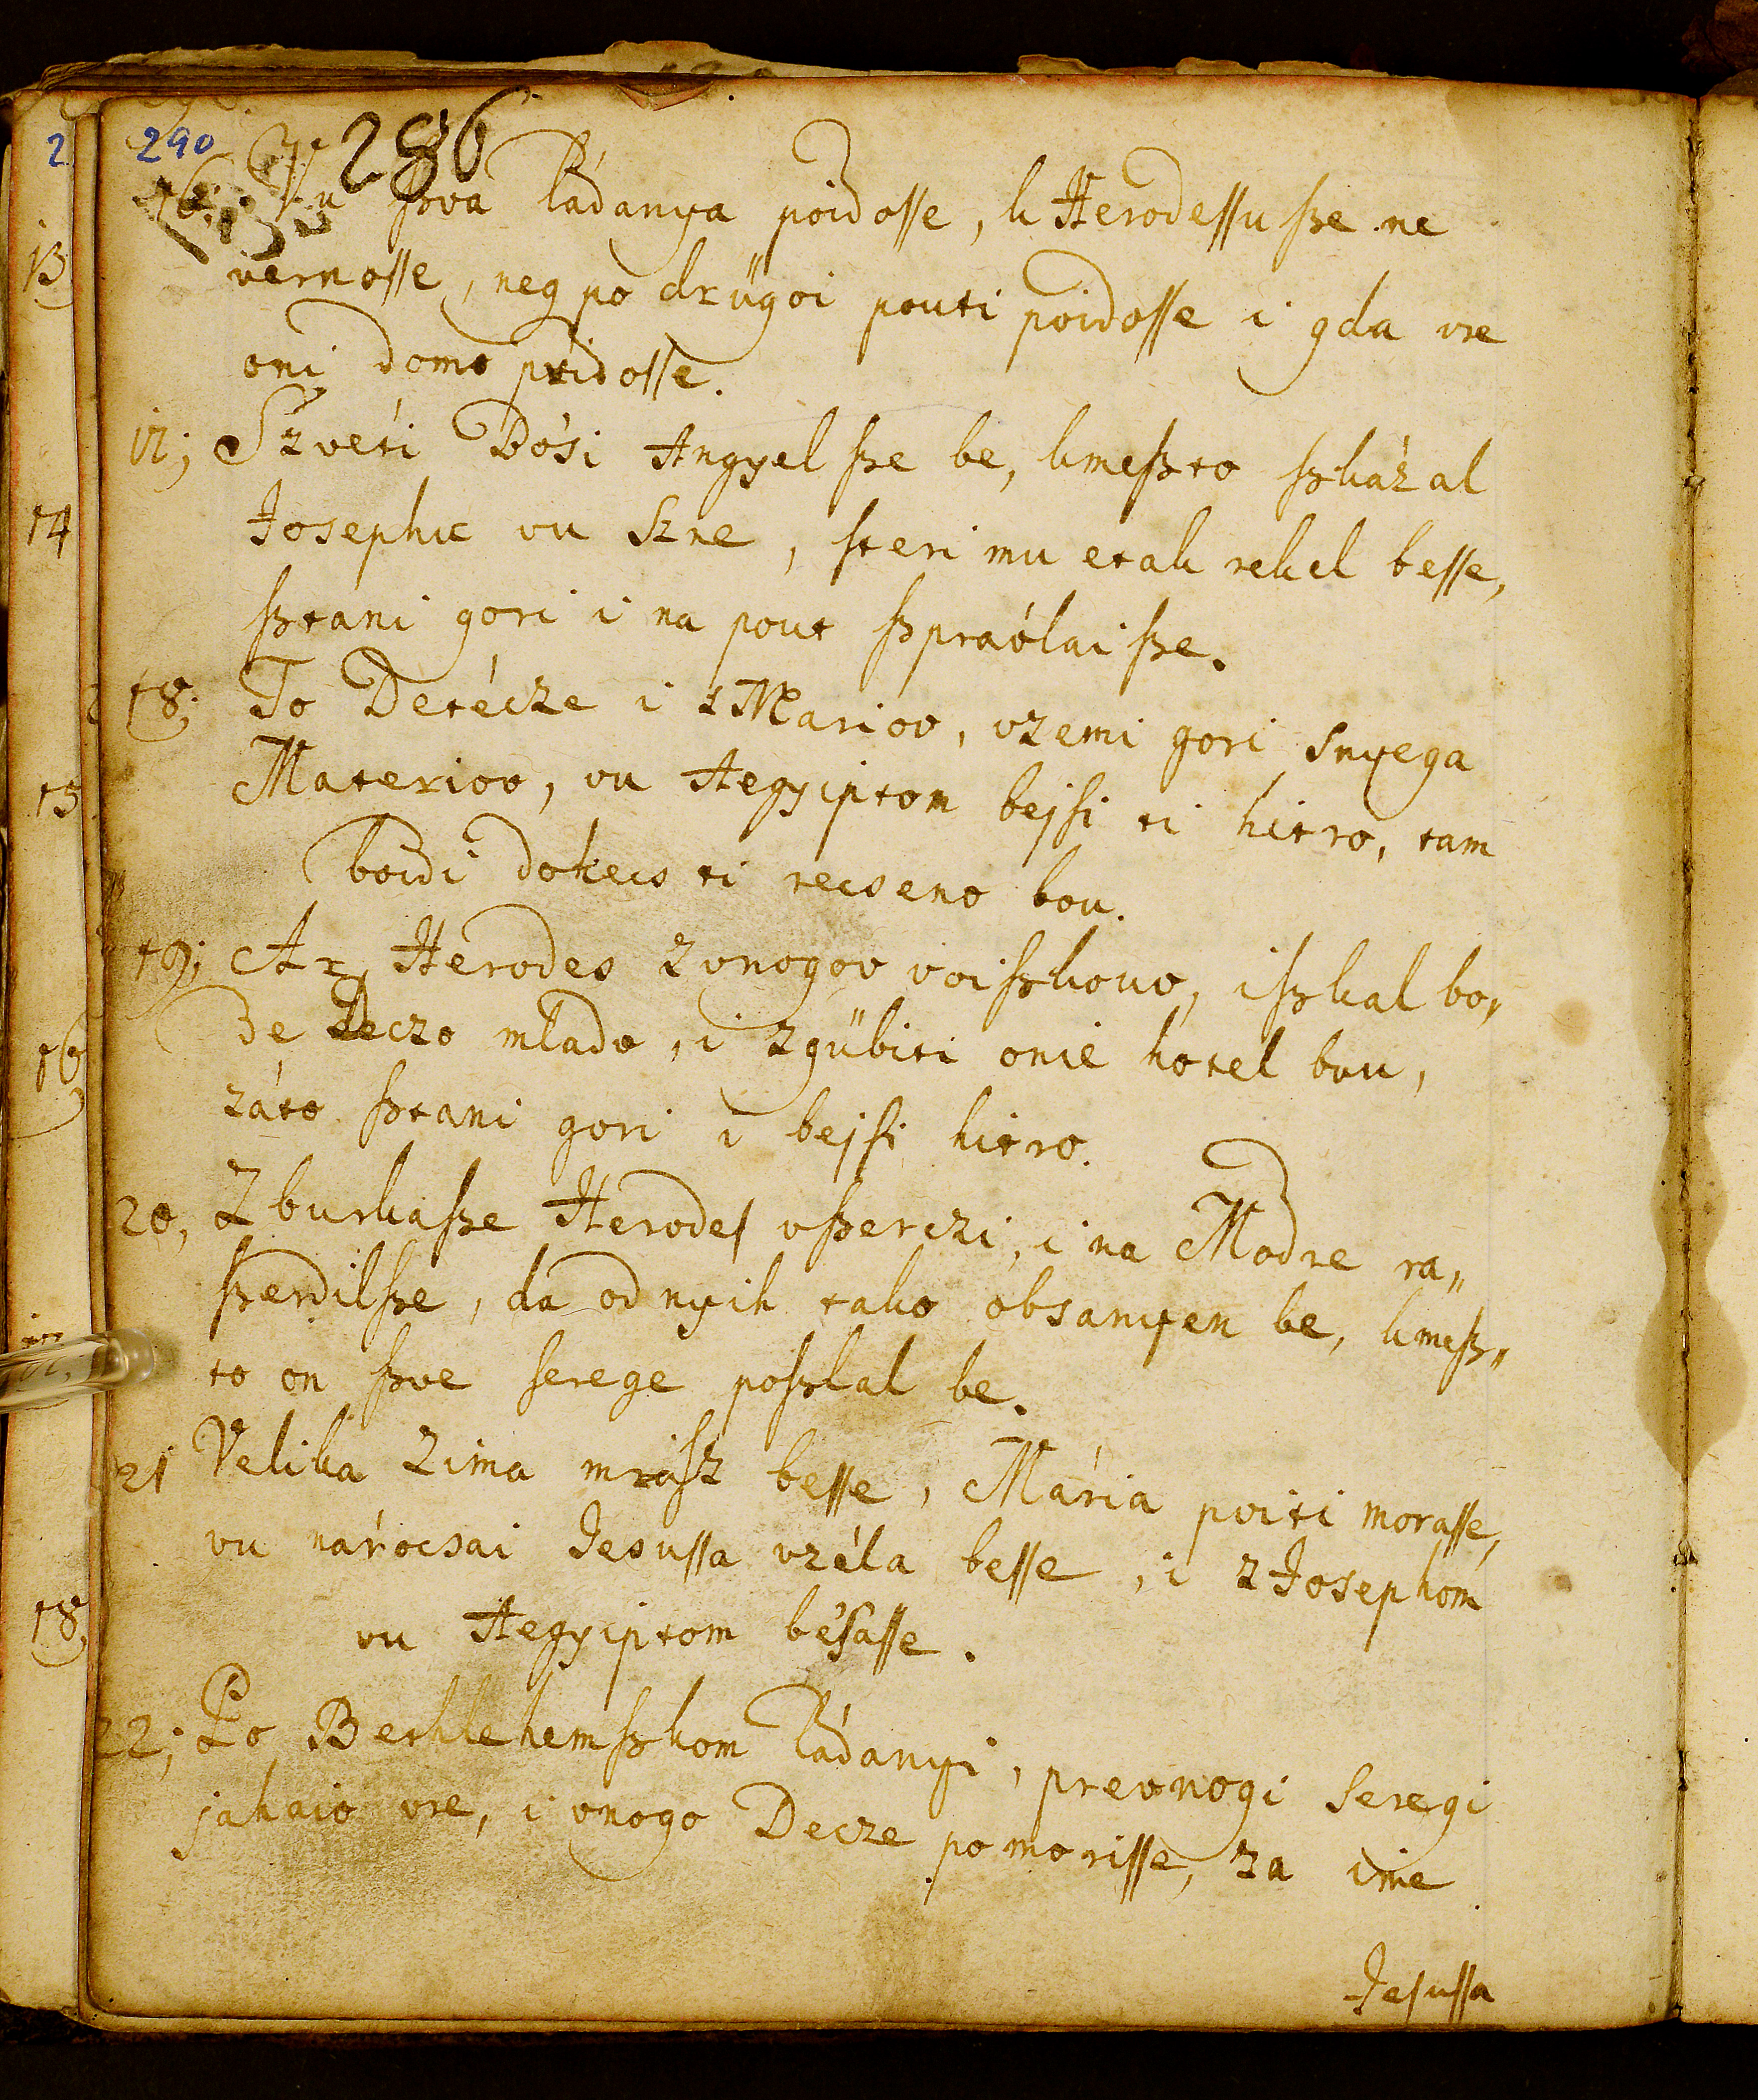 290 286
16; Vu ſzvá Ládanya poidoſſe, k Herodeſſu ſze ne
vernoſſe, neg po drügoi pouti poidoſſe i gda vre
oni domo pridoſſe.
17; Szveti Bósi Angyel ſze be, kmeſzto ſzkázal
Josephu vu Szne, ſteri mu etak rekel beſſe,
ſztani gori i na pout ſzpraólai ſze.
18; To Detécze i z Mariov, vzemi gori snyega
Materiov, vu Aegyiptom bejſi ti hitro, tam
boidi dokecs ti recseno bou.
19; Ar Herodes zvnogov voiſzkouv, iſzkal bo„
de Deczo mlado, i zgübiti onié hotel bou,
záto ſztani gori i bejſi hitro.
20, Zburkaſze Herodeſ vſzerczi, i na Modre ra„
ſzerdilſze, da od nyih tako obsanyen be, kmeſz„
to on ſzve ſerege poſzlal be.
21 Velika Zima mráſz beſſe, Mária poiti moraſſe,
vu národcsai Jesuſſa vzéla beſſe, i z Josephom
vu Aegyiptom bésaſſe.
22; Po Bethlehemſzkom Ládanyi, prevnogi Seregi
jahaio vre, i vnogo Decze pomoriſſe, za ime
Jeſuſſa
2
13
14
15
16
18